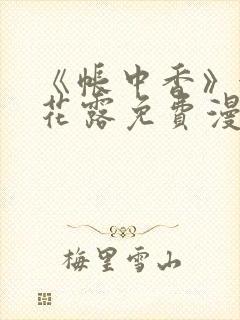 《帐中香》
花露免费漫
梅里雪山